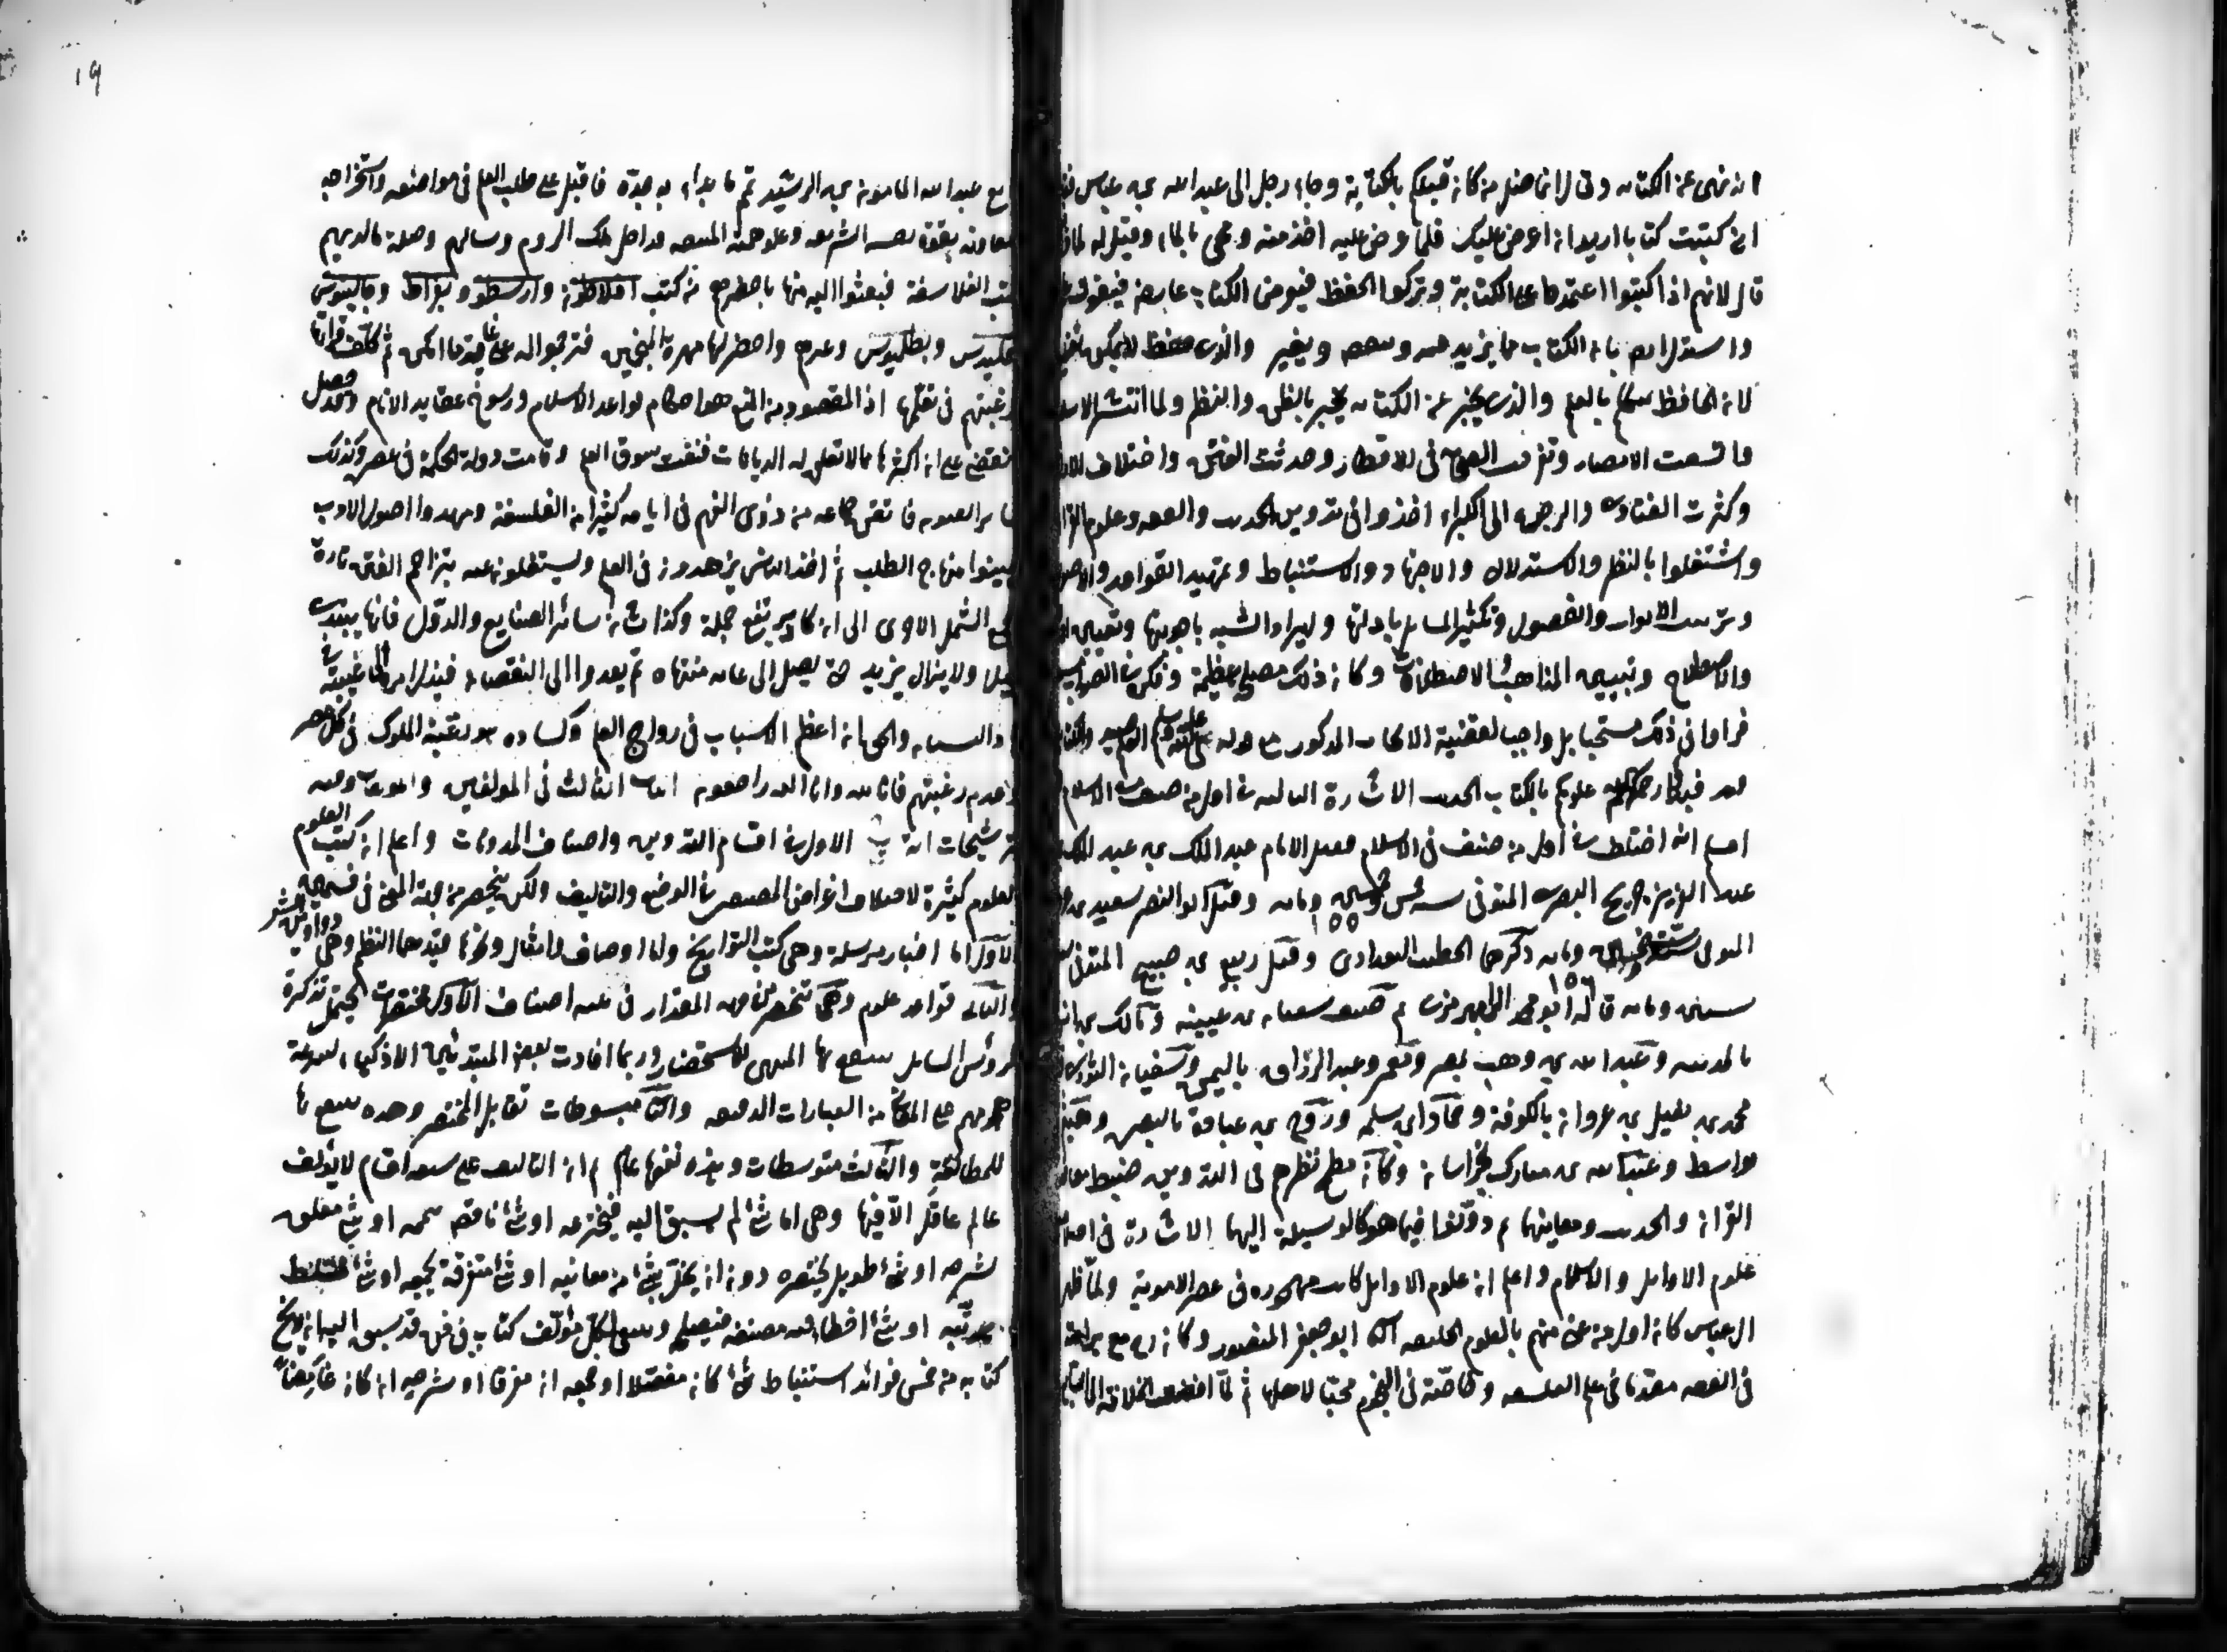 انه نهى عن الكتابة وقال انما ضل من كان قبلكم بالكتابة وجاء رجل الى عبد الله بن عباس
انى كتبت كتابا اريد ان اعرض عليك فلما عرض عليه اخذ منه ومحى بالماء وقيل له لماذا
قال لانهم اذا كتبوا اعتمدوا على الكتابة وتركوا الحفظ فيعرض الكتاب عارض فيفوت
واستدل ايضا بان الكتاب مما يزيد فيه وينقص ويغير والذى حفظ لا يمكن
لان الحافظ يتكلم بالعلم والذى يخبر عن الكتابة يخبر بالظن والنظر ولما انتشر الاسلام
واتسعت الامصار وتفرقت الصحابة فى الاقطار وحدثت الفتن واختلاف
وكثرت الفتاوى والرجوع الى الكبراء اخذوا فى تدوين الحديث والفقه وعلوم القرآن
واشتغلوا بالنظر والاستدلال والاجتهاد والاستنباط وتمهيد القواعد والاصول
وترتيب الابواب والفصول وتكثير المسائل بادلتها وايراد الشبه باجوبتها وتعيين
والاصطلاح وتبيين المذاهب والاختلافات وكان ذلك مصلحة عظيمة وفكرة فى الصواب
فراوا فى ذلك مستحبا بل واجبا لقضية الايجاب المذكور مع قوله عليه السلام العلم صيد والكتابة
قيد قيدوا رحمكم الله علومكم بالكتاب الحديث الاشارة الثالثة فى اول من صنف فى الاسلام
اعلم انه اختلف فى اول من صنف فى الاسلام فقيل الامام عبد الملك بن عبد
العزيز بن جريج البصرى المتوفى سنة خمس وخمسين ومائة ١٥٥ وقيل ابو النضر سعيد بن
المتوفى سنة ست وخمسين ومائة ١٥٦ ذكرهما الخطيب البغدادى وقيل ربيع بن صبيح المتوفى
ستين ومائة قاله ابو محمد الرامهرمزى ثم صنف سفيان بن عيينة ومالك بن انس
بالمدينة وعبد الله بن وهب بمصر ومعمر وعبد الرزاق باليمن وسفيان الثورى
محمد بن فضيل بن غزوان بالكوفة وحماد بن سلمة وروح بن عبادة بالبصرة وهشيم
بواسط وعبد الله بن مبارك بخراسان وكان مطمح نظرهم فى التدوين ضبط معاقد
القرآن والحديث ومعانيهما ثم دونوا فيما هو كالوسيلة اليهما الاشارة فى اختلاط
علوم الاوائل والاسلام واعلم ان علوم الاوائل كانت مهجورة فى عصر الاموية ولما ظهر
ال عباس كان اول من عنى منهم بالعلوم الخليفة الثانى ابو جعفر المنصور وكان مع براعته
فى الفقه مقدما فى علم الفلسفة وخاصة فى النجوم محبا لاهلها ثم لما افضت الخلافة الى
١٩
السابع عبد الله المامون بن الرشيد تمم ما بداء به جده فاقبل على طلب العلم فى مواضعه واستخراجه
من معادنه بقوة نفسه الشريفة وعلو همته المنيفة فداخل ملك الروم وسالهم وصلة ما لديهم
كتب الفلاسفة فبعثوا اليه منها ما حضرهم من كتب افلاطون وارسطو وبقراط وجالينوس
واقليدس وبطليموس وغيرهم واحضر لها مهرة المترجمين فترجموا له على غاية ما امكن ثم كلف الناس قراءتها
ورغبتهم فى تعلمها اذ المقصود من المنع هو احكام قواعد الاسلام ورسوخ عقايد الانام وقد حصل
وانقضى على ان اكثرها مما لا تعلق له بالديانات فنفقت سوق العلم وقامت دولة الحكمة فى عصره وكذلك
سائر الفنون فاتقن جماعة من ذوى الفهم فى ايامه كثيرا من الفلسفة ومهدوا اصول الادب
وبينوا منهاج الطلب ثم اخذ الناس يزهدون فى العلم ويشتغلون عنه بتزاحم الفتن تارة
وجمع الشمل اخرى الى ان كاد يرتفع جملة وكذا شان سائر الصنايع والدول فانها يبتدى
قليلا ولا يزال يزيد حتى يصل الى غاية منتهاه ثم يعود الى النقصان فيؤل امره الى الغيبة فى
والنسيان والحق ان اعظم الاسباب فى رواج العلم وكساده هو رغبة الملوك فى كل عصر
وعدم رغبتهم فانا لله وانا اليه راجعون الباب الثالث فى المؤلفين والمؤلفات وفيه
ترشيحات الترشيح الاول فى اقسام التدوين واصناف المدونات واعلم ان كتب العلوم
العلوم كثيرة لاختلاف اغراض المصنفين فى الوضع والتاليف ولكن ينحصر من جهة المعنى فى قسمين
الاول اما اخبار مرسلة وهى كتب التواريخ واما اوصاف وامثال ونحوها قيدها النظم وهى دواوين الشعر
والثانى قواعد علوم وهى تنحصر من جهة المقدار فى ثلاثة اصناف الاول مختصرات تجعل تذكرة
لرؤس المسائل ينتفع بها المنتهى للاستحضار وربما افادت بعض المبتدئين الاذكياء لسرعة
هجومهم على المعانى من العبارات الدقيقة والثانى مبسوطات تقابل المختصر وهذه ينتفع بها
للمطالعة والثالث متوسطات وهذه نفعها عام ثم ان التاليف على سبعة اقسام لا يؤلف
عالم عاقل الا فيها وهى اما شئ لم يسبق اليه فيخترعه او شئ ناقص يتممه او شئ مغلق
يشرحه او شئ طويل يختصره دون ان يخل بشئ من معانيه او شئ متفرق يجمعه او شئ مختلط
يرتبه او شئ اخطا فيه مصنفه فيصلحه وينبغى لكل مؤلف كتاب فى فن قد سبق اليه ان لا يخ
كتابه من خمس فوائد استنباط شئ كان معضلا او جمعه ان كان مفرقا او شرحه ان كان غامضا